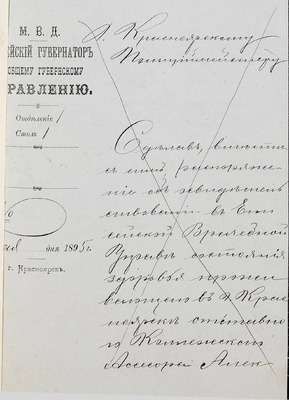 М. В. Д.
ЙСКІЙ ГУБЕРНАТОРЪ
ОБЩЕМУ ГУБЕРНСКОМУ
РАВЛЕНІЮ.
Отдѣленіе 1
Столъ 1
дня 1895 г.
г. Красноярскъ.
Г. Красноярскому
Полиціймейстеру
Сдѣлавъ, вмѣстѣ
съ симъ, распоряже
ніе объ освидѣтель
ствованіи въ Ени
сейской Врачебной
Управѣ состоянія
здоровья прожи
вающаго въ г. Крас
ноярскѣ отставно
го Коллежскаго
Асесора Алек